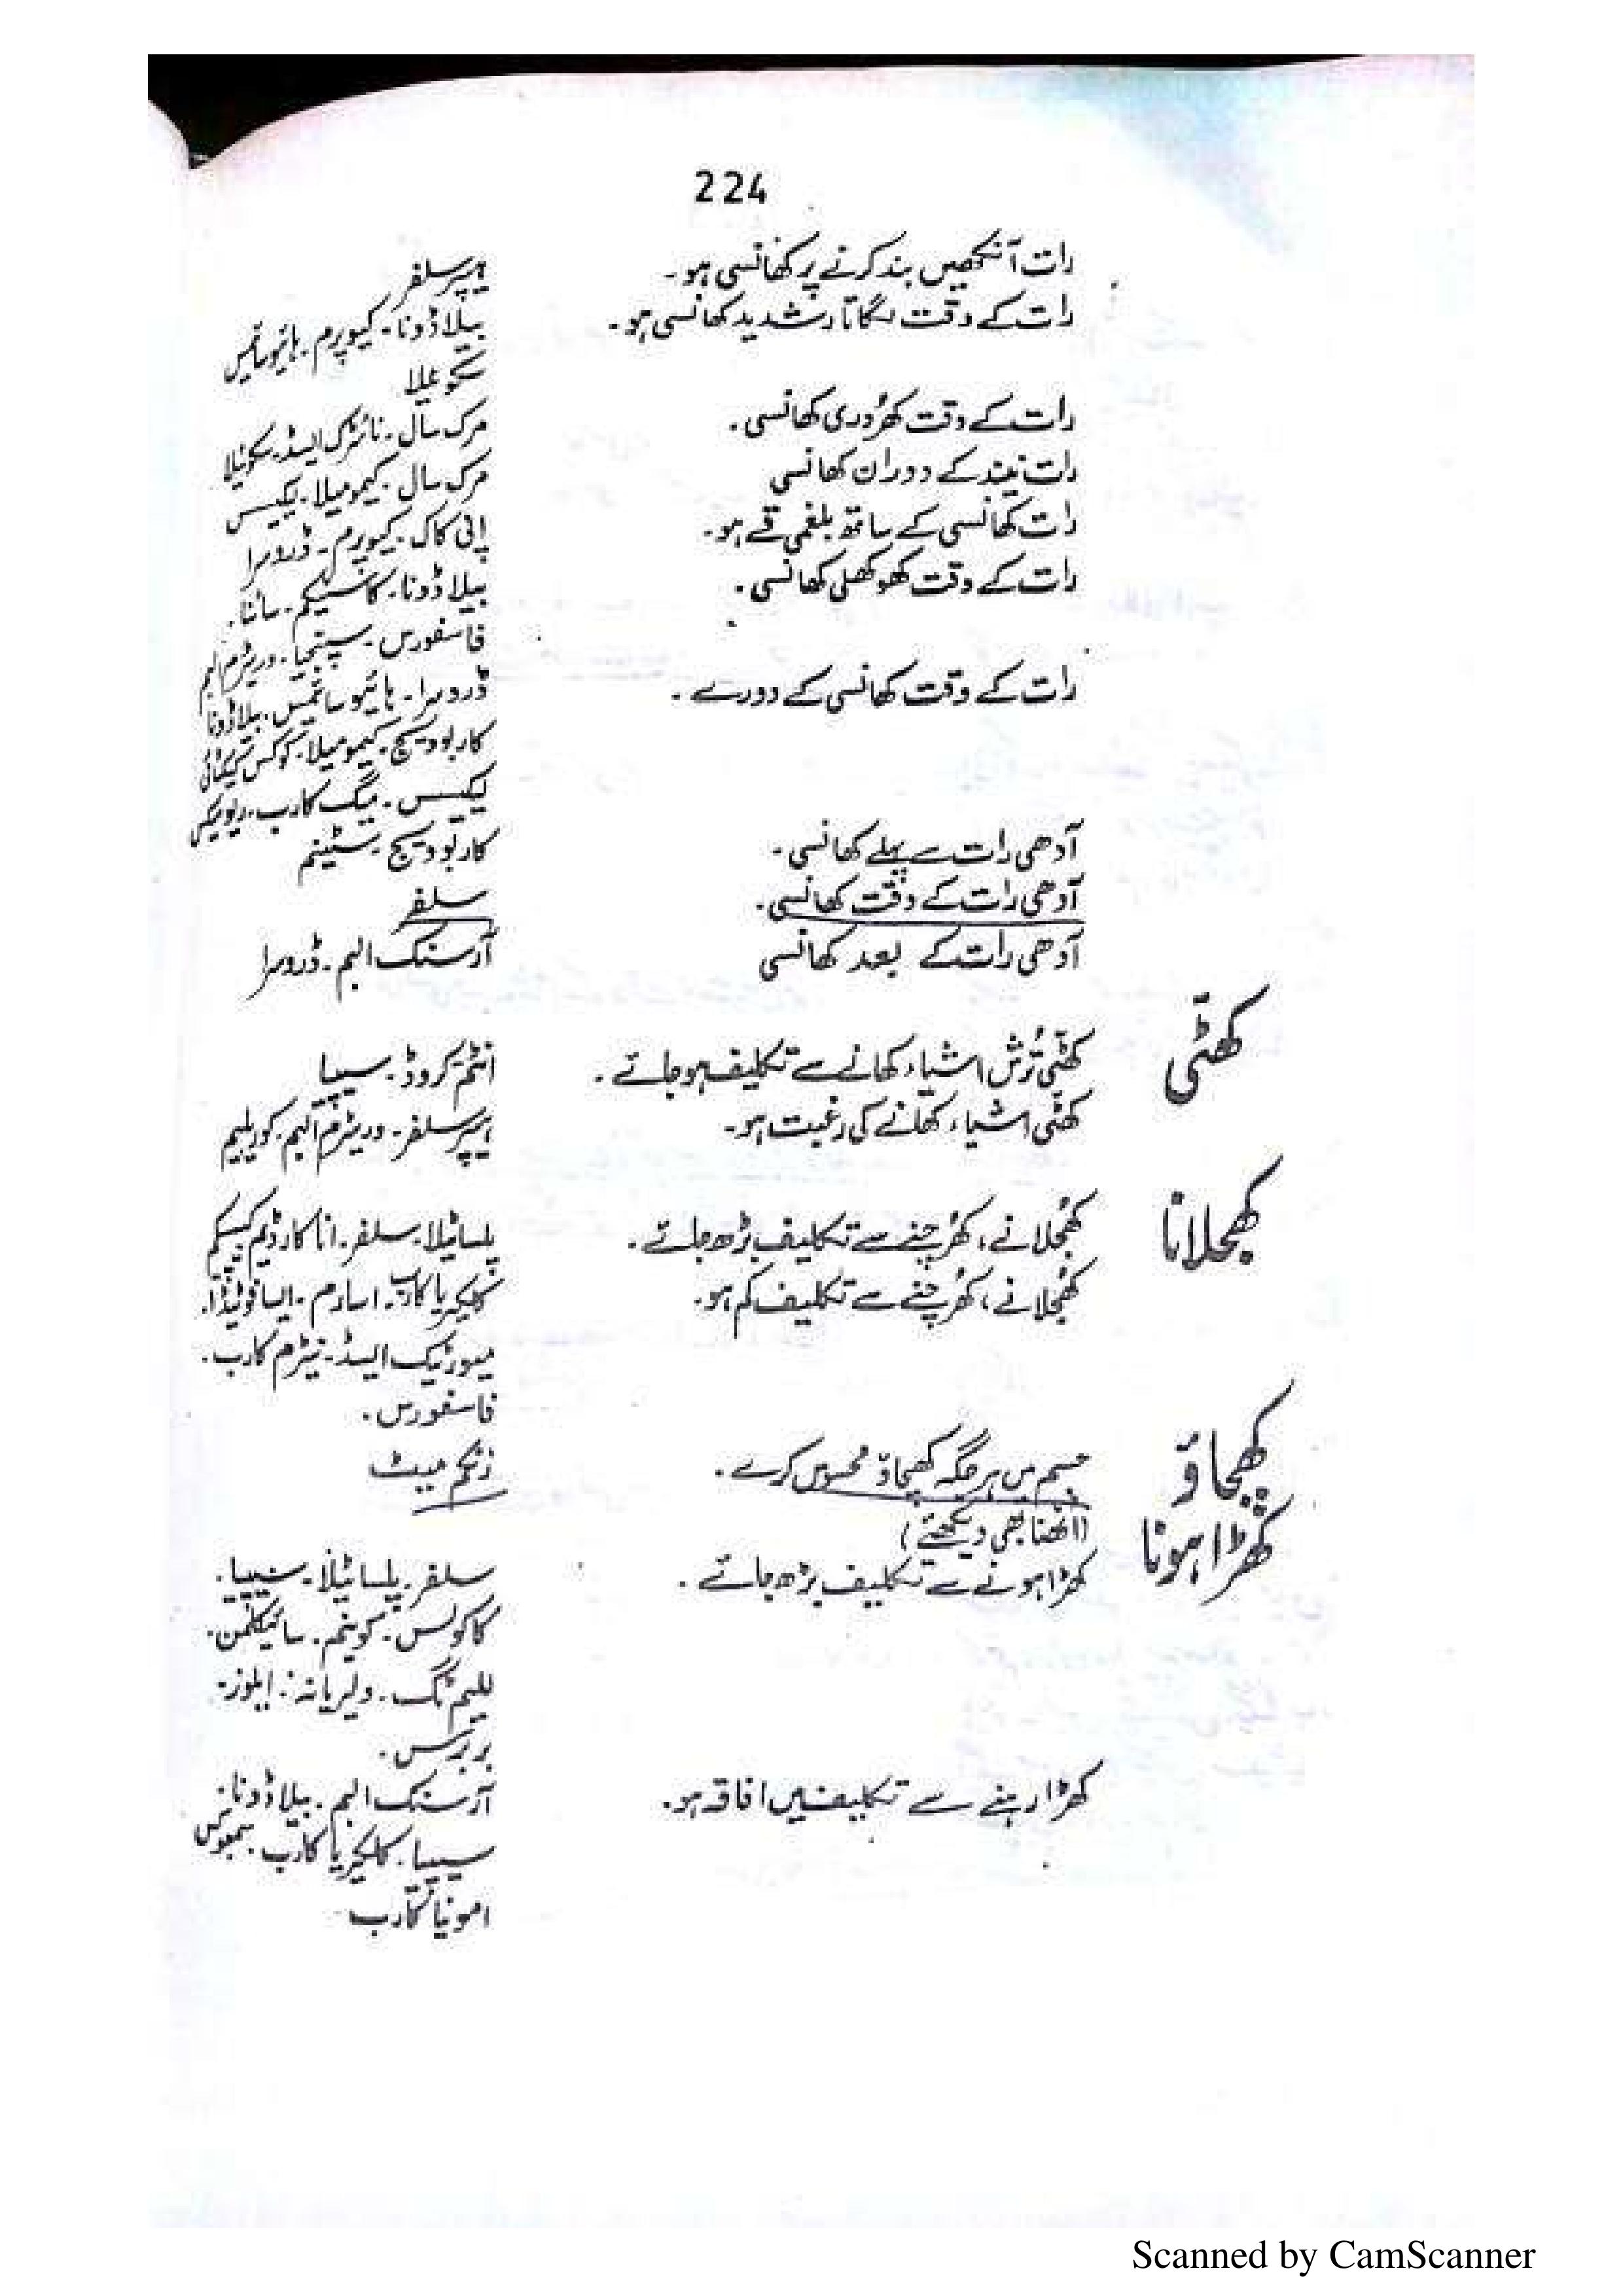 224
رات آنکھیں بند کرنے پر کھانسی ہو۔ ہیپر سلفر
رات کے وقت لگاتار شدید کھانسی ہو۔ بیلاڈونا۔ کیوپرم۔ ہائیوسائمس
سکوئلا
رات کے وقت کھُردری کھانسی۔ مرک سال۔ نائٹرک ایسڈ۔ سکوئیلا
رات نیند کے دوران کھانسی مرک سال۔ کیمومیلا۔ لیکیسس
رات کھانسی کے ساتھ بلغمی قے ہو۔ اپی کاک۔ کیوپرم۔ ڈروسرا
رات کے وقت کھوکھلی کھانسی۔ بیلاڈونا۔ کاسٹیکم۔ سائنا۔
فاسفورس۔ سپنجیا۔ وریٹرم البم
رات کے وقت کھانسی کے دورے۔ ڈروسرا۔ ہائیوسائمس۔ بیلاڈونا
کاربوویج۔ کیمومیلا۔ کوکس کیکٹائی
لیکیسس۔ میگ کارب۔ ریومیکس
آدھی رات سے پہلے کھانسی۔ کاربوویج۔ سٹینم
آدھی رات کے وقت کھانسی۔ سلفر
آدھی رات کے بعد کھانسی آرسنک البم۔ ڈروسرا
کھٹّی
کھٹّی تُرش اشیاء کھانے سے تکلیف ہو جائے۔ انٹم کروڈ۔ سیپیا
کھٹّی اشیاء کھانے کی رغبت ہو۔ ہیپر سلفر۔ وریٹرم البم۔ کوریلیم
کھجلانا
کھُجلانے، کھُرچنے سے تکلیف بڑھ جائے۔ پلساٹیلا۔ سلفر۔ اناکارڈیم۔ کیپسیکم
کھُجلانے، کھُرچنے سے تکلیف کم ہو۔ کلکیریا کارب۔ اسارم۔ ایسافوٹیڈا۔
میورٹیک ایسڈ۔ نیٹرم کارب۔
فاسفورس۔
کھچاؤ
جسم میں ہر جگہ کھچاؤ محسوس کرے۔ زنکم میٹ
کھڑا ہونا
(اٹھنا بھی دیکھئے)
کھڑا ہونے سے تکلیف بڑھ جائے۔ سلفر۔ پلساٹیلا۔ سیپیا۔
کاکولس۔ کونیم۔ سائیکلمن۔
للیم ٹگ۔ ولیریانہ۔ ایلوز۔
بربرس۔
کھڑا رہنے سے تکلیف میں افاقہ ہو۔ آرسنک البم۔ بیلاڈونا۔
سیپیا۔ کلکیریا کارب۔
امونیا کارب
Scanned by CamScanner